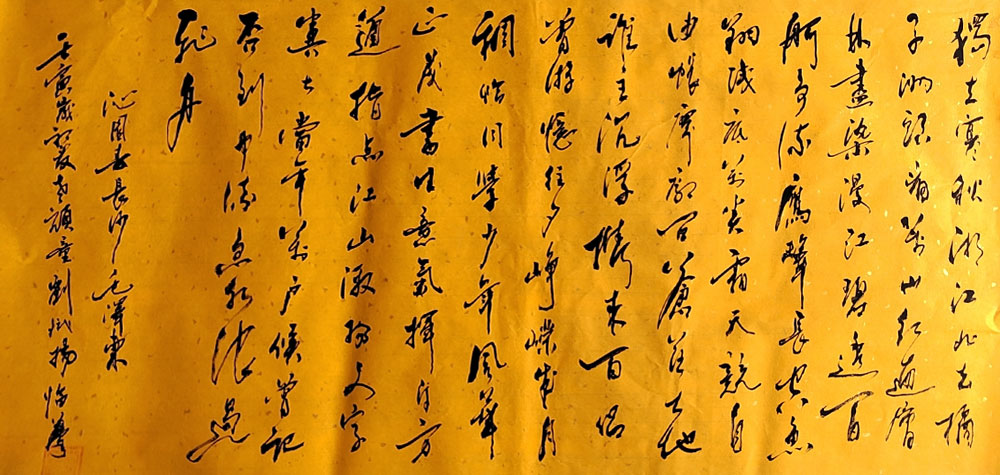 獨立寒秋湘江北去橘
子洲頭看萬山紅遍層
林盡染漫江碧透百
舸爭流鷹擊長空魚
翔淺底萬類霜天競自
由悵寥廓問蒼茫大地
誰主沉浮攜來百侶
曾游憶往夕崢嶸歲月
稠恰同學少年風華
正茂書生意氣揮斥方
遒指點江山激揚文字
糞土當年萬戶侯曾記
否到中流擊水浪遏
飛舟
沁園春長沙毛澤東
壬寅歲 頑童劉 揚